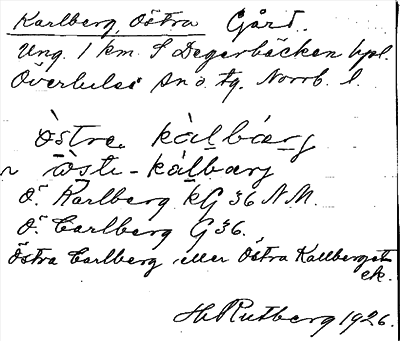 Karlberg, Östra Gård.
Ung. 1 km. S Degerbäcken hpl.
Överluleå sn o. tg. Norrb. l.
östre kàlbárj
östi-kàlbarj
Ö. Karlberg kG 36 N.M.
Ö. Carlberg G 36.
Östra Carlberg eller Östra Kallberget
ek.
H. Rutberg 1926.